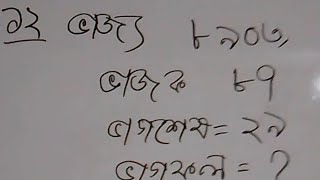 ১২ ভাজ্য ৮৯০৩,
ভাজক ৮৭
ভাগশেষ = ২৯
ভাগফল = ?